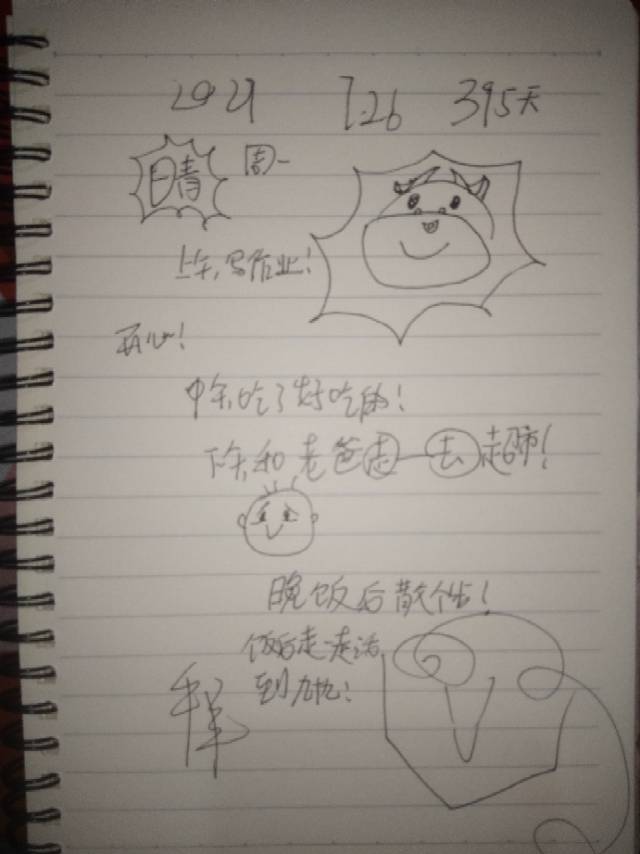 2021 7.26 395天
晴 周一
上午,写作业!
开心!
中午,吃了好吃的!
下午,和老爸走一去超市!
晚饭后散个步!
饭后走一走活
到九九!